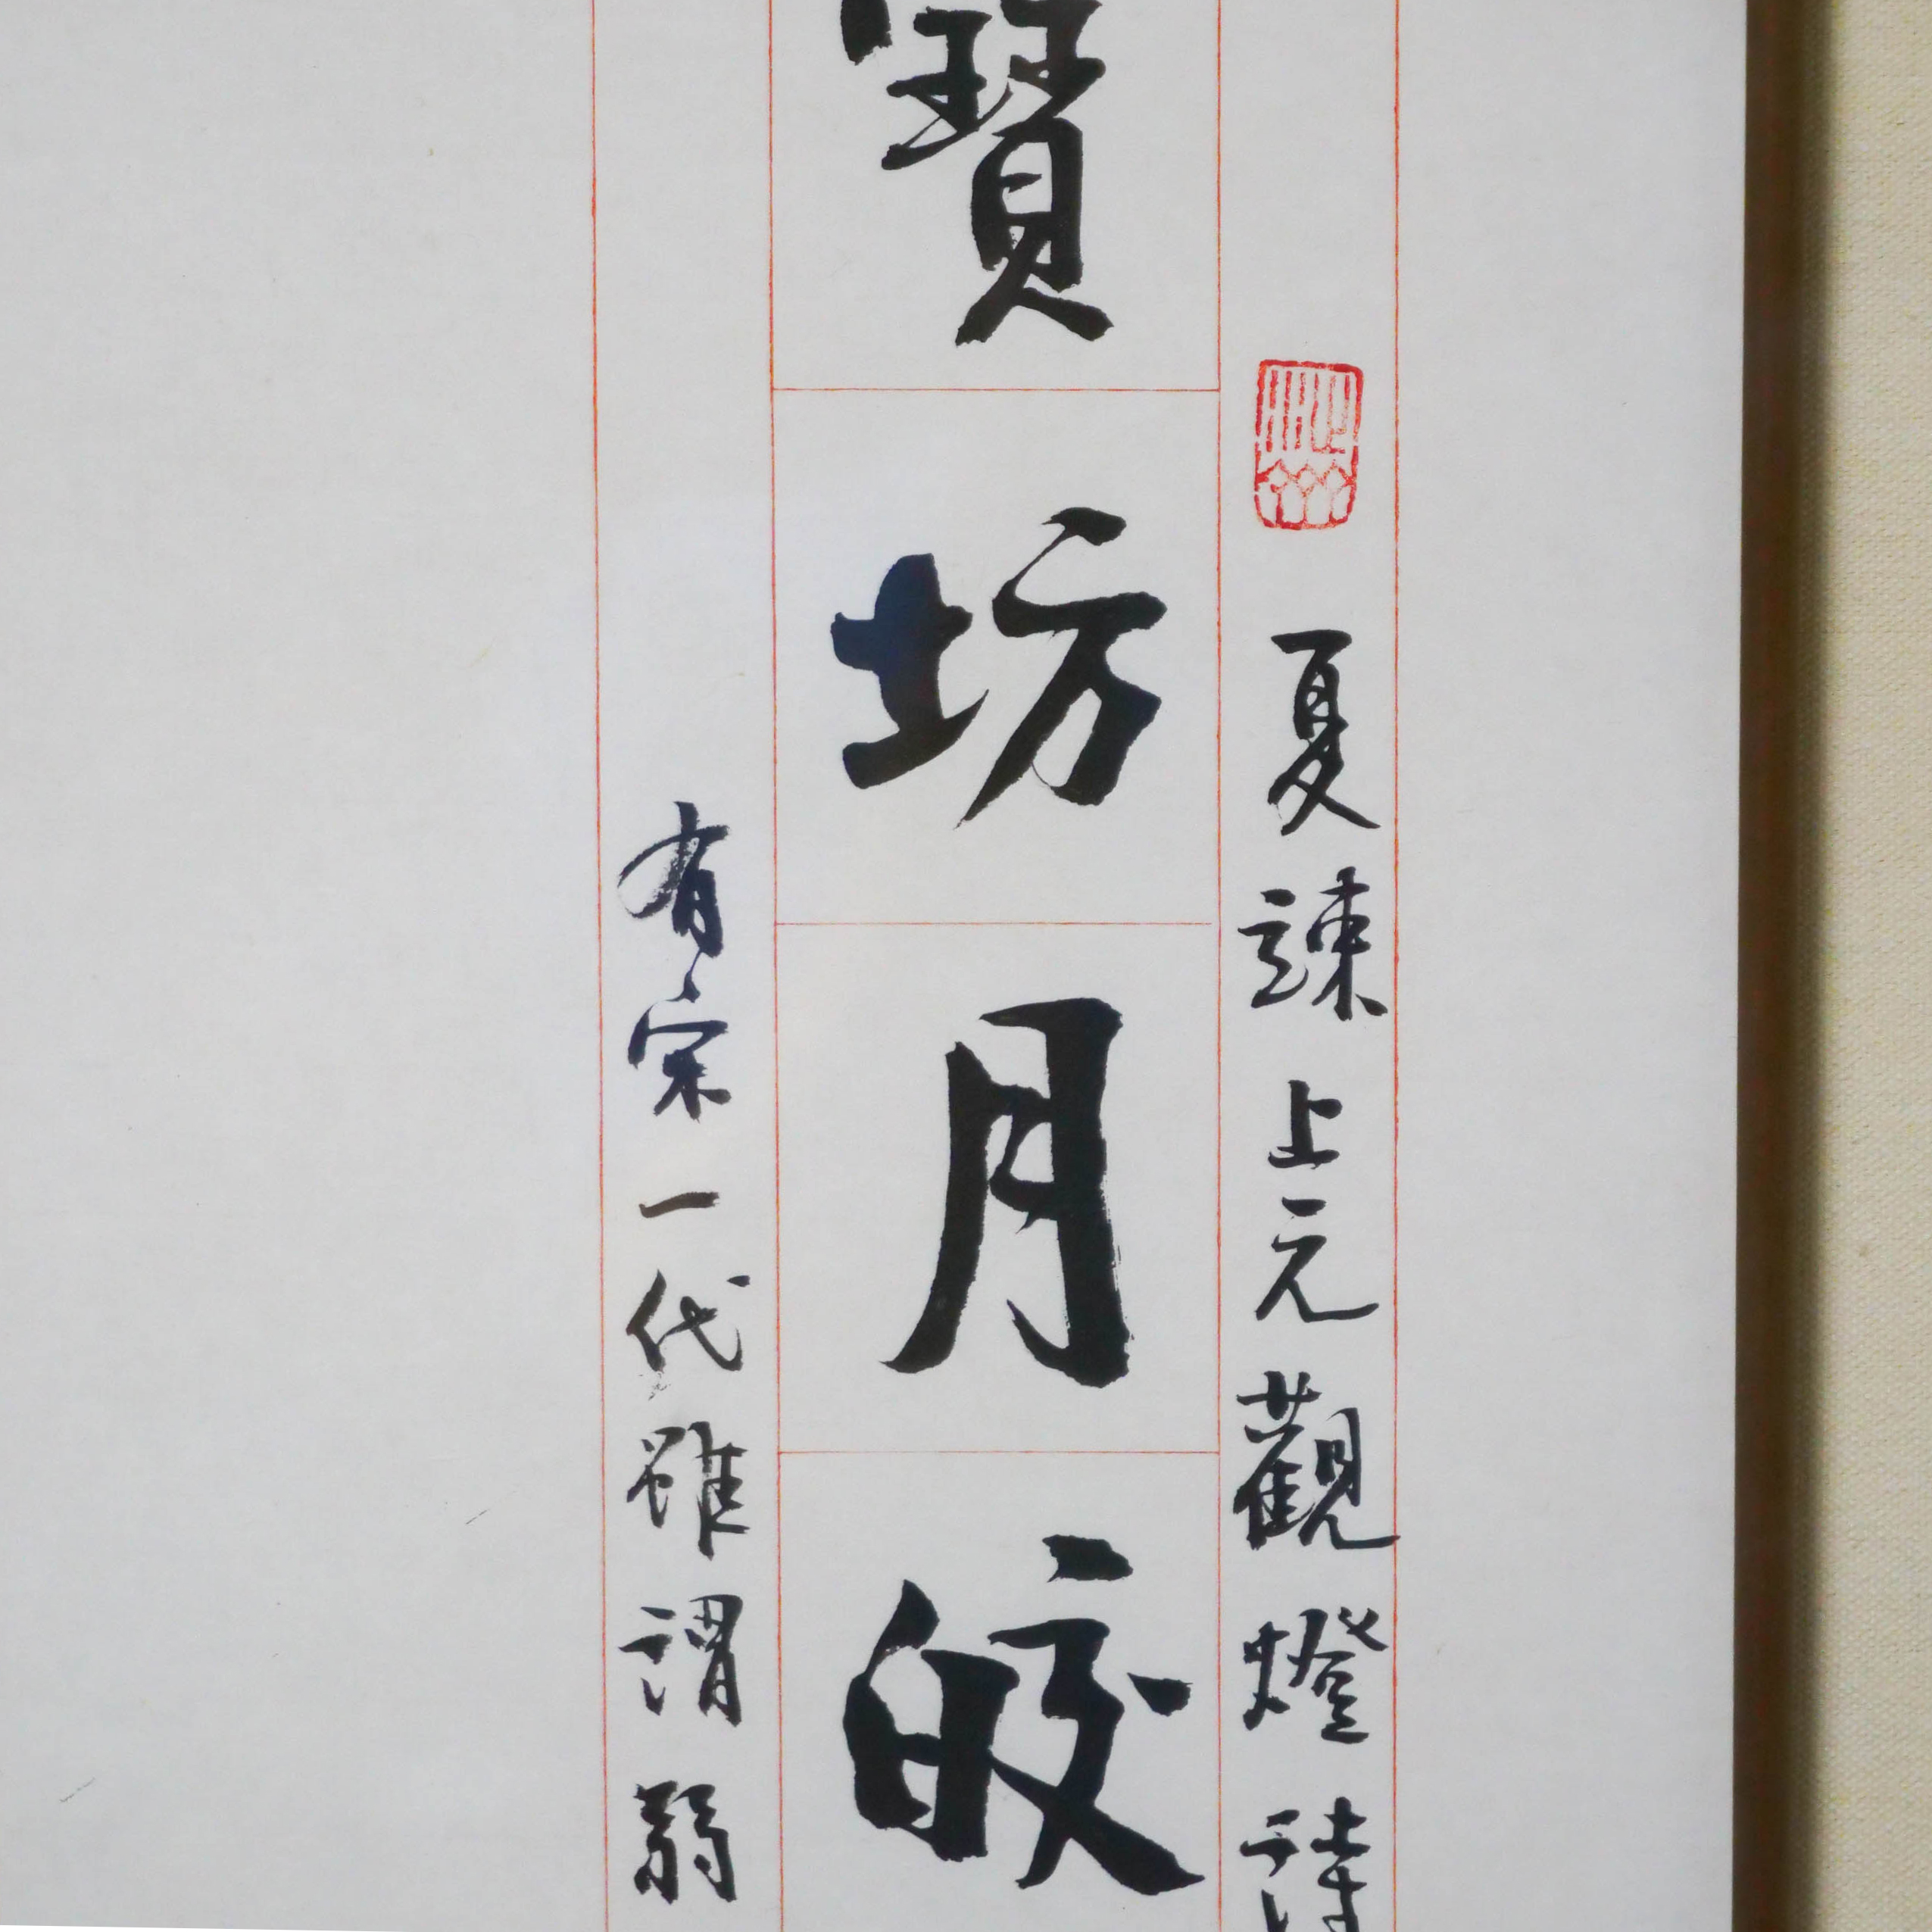 夏竦上元觀燈詩
寶坊月皎
有宋一代雖謂弱